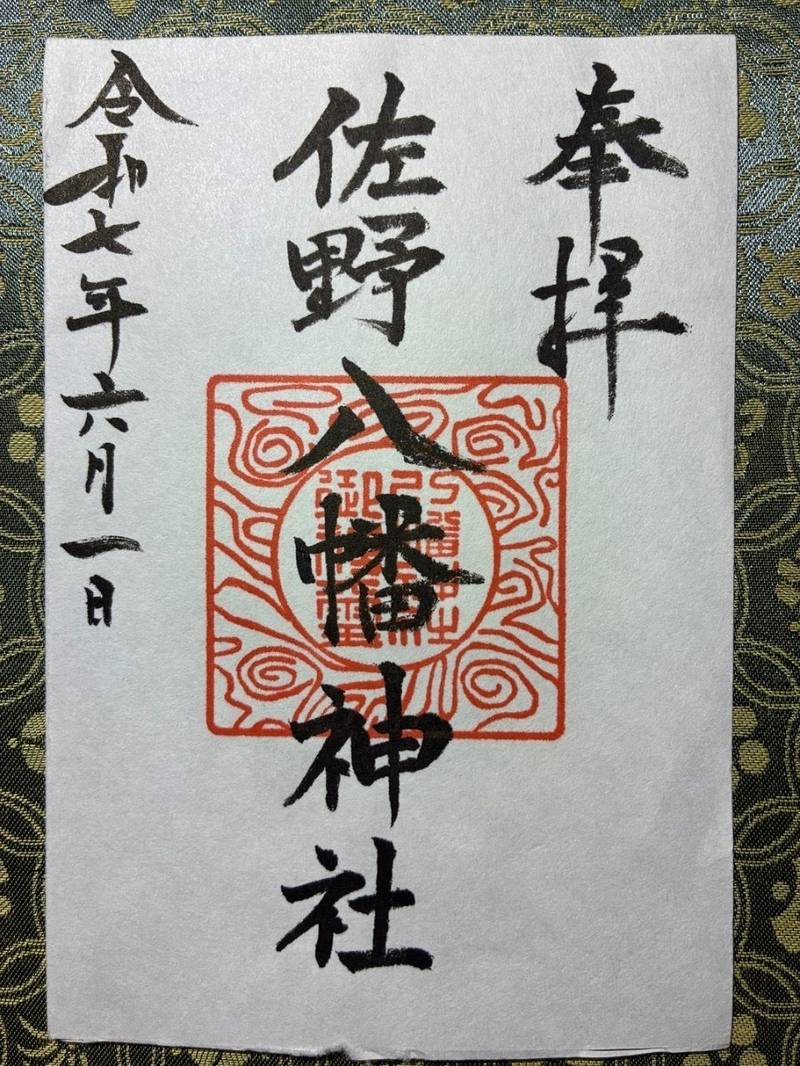 奉拝
佐野八幡神社
令和七年六月一日